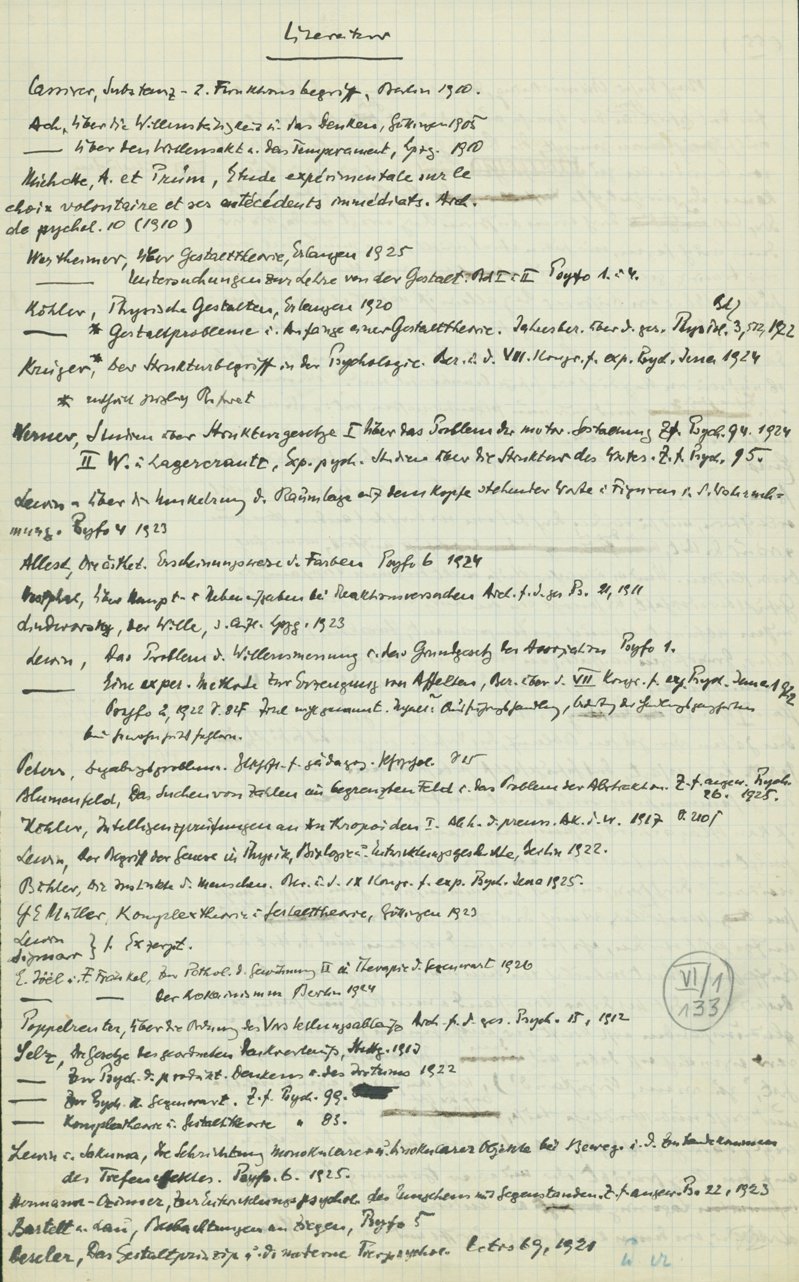 Literatur
Cassirer, Substanz- u. Funktionsbegriff, Berlin 1910.
Ach, Über die Willenstätigkeit u. das Denken, Göttingen 1905
— Über den Willensakt u. das Temperament, Lpzg. 1910
Michotte, A. et Prüm, Etude expérimentale sur le
choix volontaire et ses antécédents immédiats. Arch.
de psychol. 10 (1910)
Wertheimer, Über Gestalttheorie, Erlangen 1925
— Untersuchungen zur Lehre von der Gestalt. Bd I u. II Psyfo 1. u. 4.
Köhler, Physische Gestalten, Erlangen 1920
— * Gestaltprobleme u. Anfänge einer Gestalttheorie. Jahresber. über d. ges. Physiol. 3, 1922
Krüger, * Der Strukturbegriff in der Psychologie. Ber. ü. d. VIII. Kongr. f. exp. Psych. Jena 1924
* Referat
Werner, Studien über Strukturgesetze I Über das Problem der motor. Gestaltung Z.f. Psych. 94. 1924
II W. u. Lagercrantz, Exp. psych. Studien über die Struktur des Wortes. Z.f. Psych. 95.
Lewin, Über die Umkehrung d. Raumlage auf dem Kopfe stehender Worte u. Figuren i. d. Wahrneh-
mung. Psyfo 4 1923
Allesch, Die ästhet. Erscheinungsweise d. Farben Psyfo 6 1924
Westphal, Über Haupt- u. Nebenaufgaben bei Reaktionsversuchen Arch. f. d. ges Ps. 21, 1911
Lindworsky, Der Wille, 3. Aufl. Lpzg. 1923
Lewin, Das Problem d. Willensmessung u. das Grundgesetz der Assoziation Psyfo 1.
— Eine exper. Methode zur Erzeugung von Affekten, Ber. über d. VII Kongr. f. exp. Psych. Jena 1922
Psyfo 2, 1922
Peters, Begabungsproblem. Ztschft. f. pädagog. Psychol.
Blumenfeld, Das Suchen von Zahlen im begrenzten Feld u. das Problem der Abstraktion. Z.f. angew. Psych.
26. 1925.
Köhler, Intelligenzprüfungen an Anthropoiden I. Abh. d. preuss. Ak. d. W. 1917
Lewin, Der Begriff der Genese in Physik, Biologie u. Entwicklungsgeschichte, Berlin 1922.
Bühler, Die Instinkte d. Menschen. Ber. ü. d. IX Kongr. f. exp. Psych. Jena 1925.
G E Müller, Komplextheorie u. Gestalttheorie, Göttingen 1923
Lewin
Sigmar } s. Exzerpt.
E. Joël u. F. Fränkel, Zur Pathol. d. Gewöhnung II in Therapie d. Gegenwart 1926
— — Der Kokainismus Berlin 1924
Poppelreuter, Über die Ordnung des Vorstellungsablaufs Arch. f. d. ges. Psych. 15, 1912
Selz, Die Gesetze des geordneten Denkverlaufs, Stuttg. 1913
— Zur Psych. d. produkt. Denkens u. des Irrtums 1922
— Zur Psych. d. Gegenwart. Z.f. Psych. 99.
— Komplextheorie u. Gestalttheorie " 83.
Lewin u. Sakuma, Die Sehrichtung monokularer u. binokularer Objekte bei Beweg. u. d. Zustandekommen
des Tiefeneffektes. Psyfo. 6. 1925.
Hermann-Cziner, Zur Entwicklungspsychol. des Umgehens mit Gegenständen. Z.f. angew. Ps. 22, 1923
Bartelt u. Lau, Beobachtungen an Ziegen, Psyfo 5
Beseler, Das Gestaltprinzip u. d. moderne Tierpsychol. 1921
VI/1
133